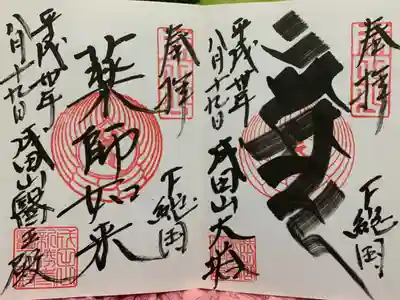 奉拝
下総国
平成卅年
八月十九日
成田山大塔
奉拝
下総国
薬師如来
平成卅年
八月十九日
成田山醫王殿